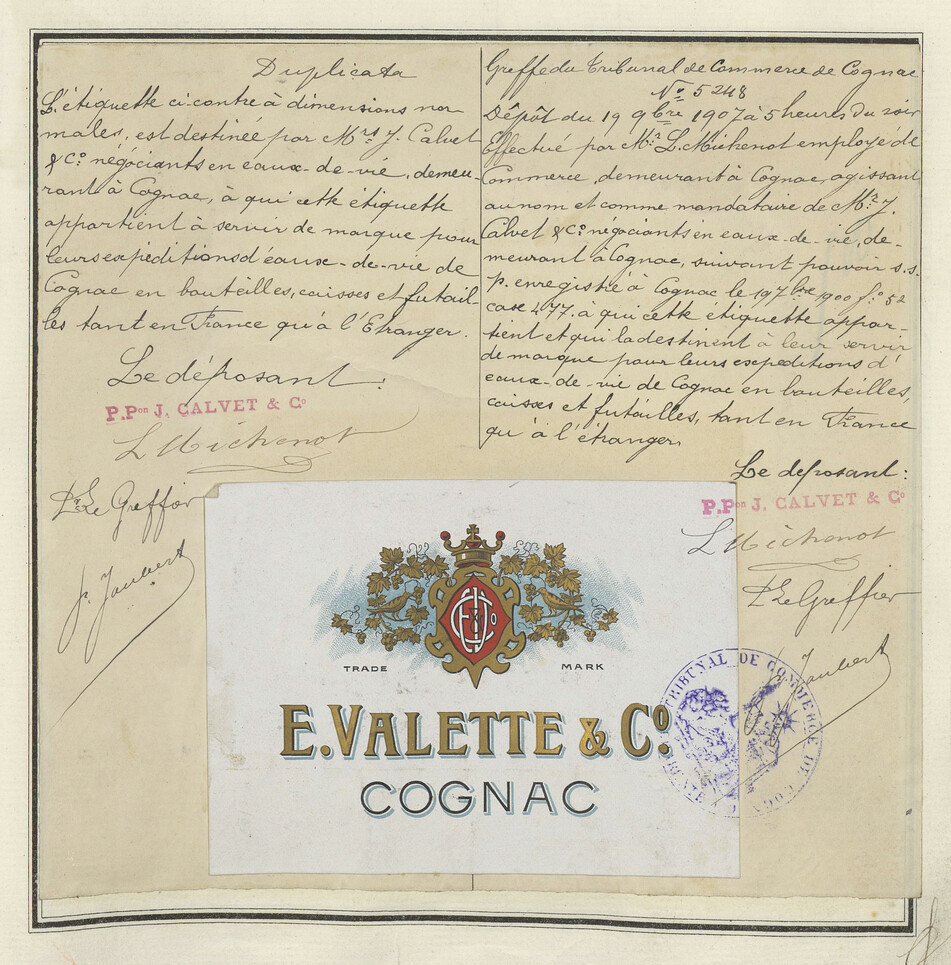 Duplicata
L'étiquette ci-contre à dimensions nor-
males, est destinée par Mrs J. Calvet
& Co négociants en eaux-de-vie, demeu-
rant à Cognac, à qui cette étiquette
appartient à servir de marque pour
leurs expéditions d'eaux-de-vie de
Cognac en bouteilles, caisses et futail-
les tant en France qu'à l'Etranger.
Le déposant:
P.Pon J. CALVET & Co
L Michenot
Pr Le Greffier
J. Jaubert
Greffe du Tribunal de Commerce de Cognac
No 5248
Dépôt du 19 9bre 1907 à 5 heures du soir
Effectué par Mr L. Michenot employé de
Commerce, demeurant à Cognac, agissant
au nom et comme mandataire de Mrs J.
Calvet & Co négociants en eaux-de-vie, de-
meurant à Cognac, suivant pouvoir s.s.
p. enregistré à Cognac le 19 7bre 1900 fo 52
case 477, à qui cette étiquette appar-
tient et qui la destinent à leur servir
de marque pour leurs expéditions d'
eaux-de-vie de Cognac en bouteilles,
caisses et futailles, tant en France
qu'à l'étranger.
Le déposant:
P.Pon J. CALVET & Co
L Michenot
Pr Le Greffier
J. Jaubert
TRADE MARK
E. VALETTE & Co.
COGNAC
TRIBUNAL DE COMMERCE DE COGNAC